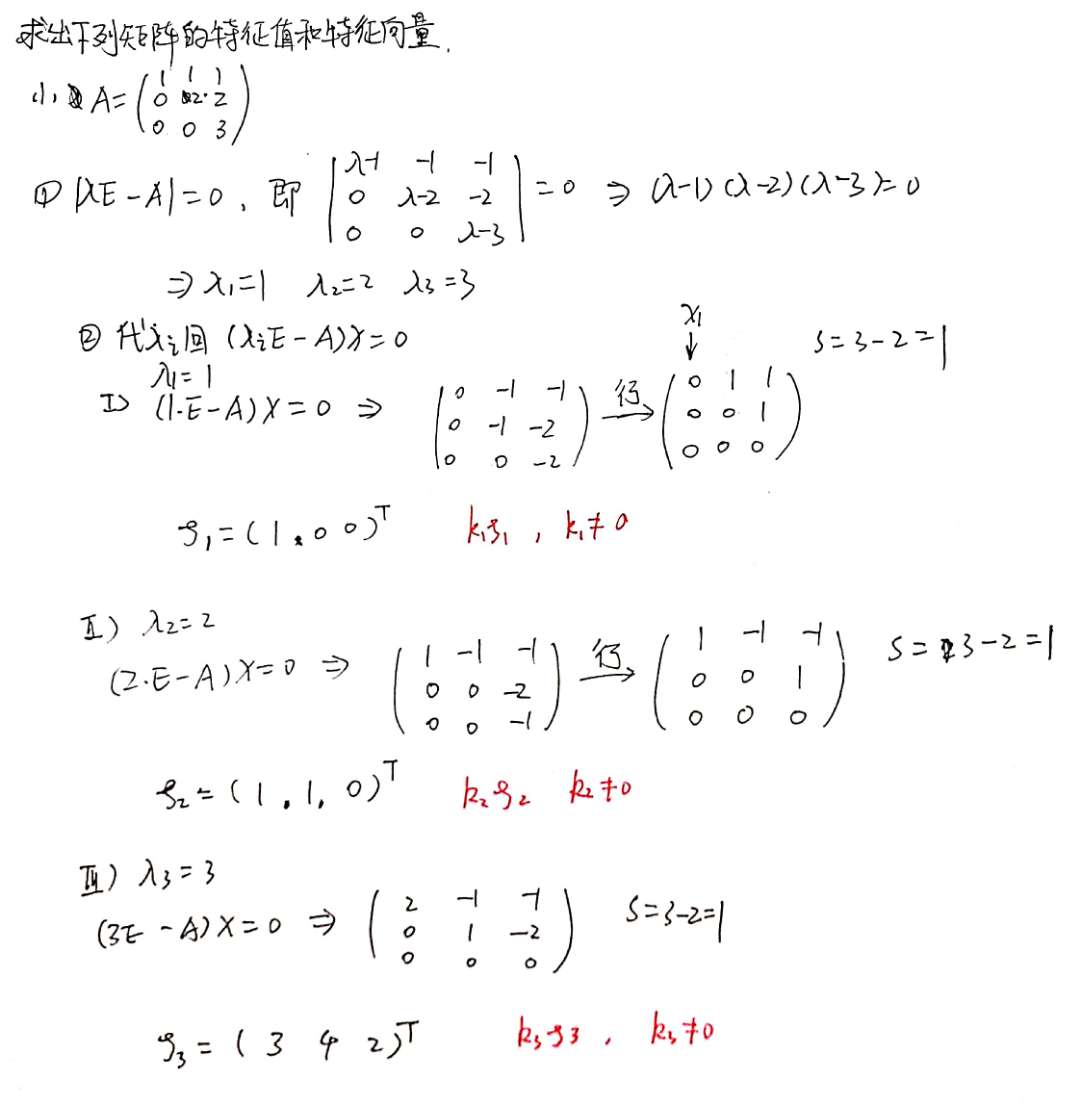 求出下列矩阵的特征值和特征向量.
(1) A = ( 1 1 1
0 2 2
0 0 3 )
① |λE-A|=0, 即 | λ-1 -1 -1
0 λ-2 -2
0 0 λ-3 | =0 ⇒ (λ-1)(λ-2)(λ-3)=0
⇒ λ₁=1 λ₂=2 λ₃=3
② 代λᵢ回 (λᵢE-A)X=0
λ₁=1
I) (1·E-A)X=0 ⇒ ( 0 -1 -1
0 -1 -2
0 0 -2 ) 行→
x₁
↓
( 0 1 1
0 0 1
0 0 0 )
S=3-2=1
ξ₁=(1, 0 0)ᵀ k₁ξ₁, k₁≠0
II) λ₂=2
(2·E-A)X=0 ⇒ ( 1 -1 -1
0 0 -2
0 0 -1 ) 行→
( 1 -1 -1
0 0 1
0 0 0 )
S=3-2=1
ξ₂=(1, 1, 0)ᵀ k₂ξ₂ k₂≠0
III) λ₃=3
(3E-A)X=0 ⇒ ( 2 -1 -1
0 1 -2
0 0 0 )
S=3-2=1
ξ₃=(3 4 2)ᵀ k₃ξ₃, k₃≠0